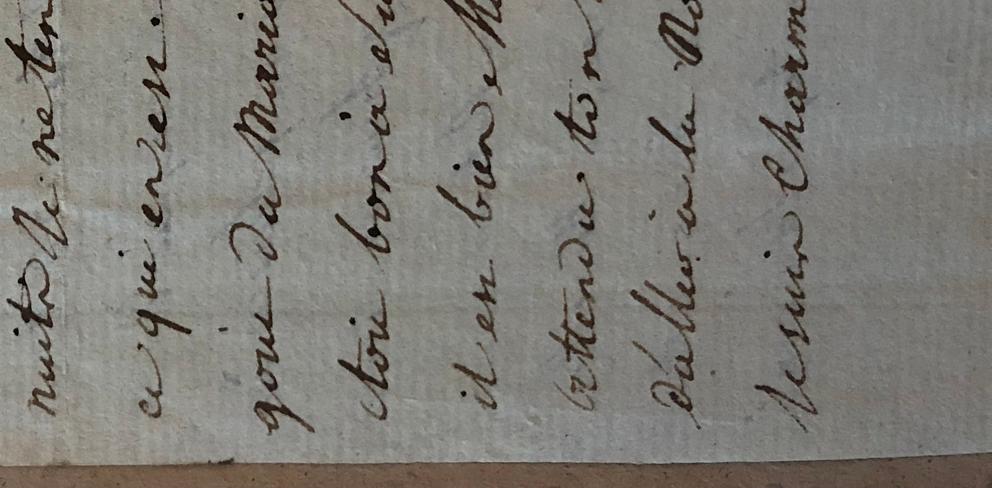 nuits Je ne ten
ce qui en est.
gout Du Mari
étoit bon a et
il est bien
attendu ton
D'aller a la No
Je suis Charm